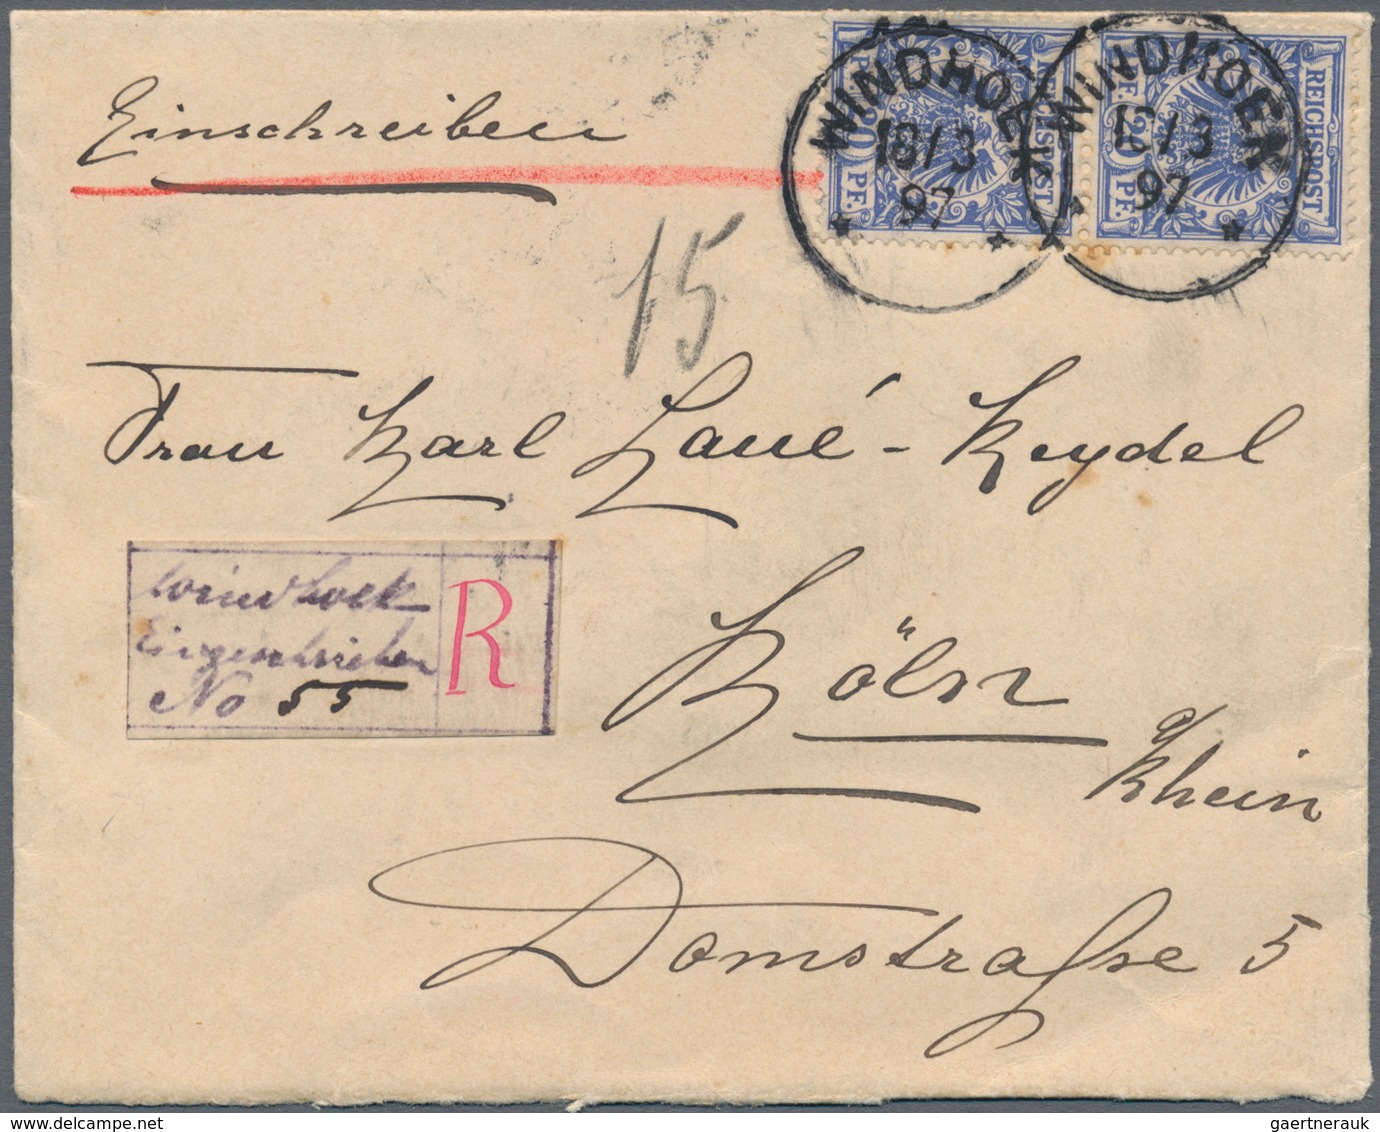 Einschreiben
REICHSPOST
20 PF.
PF. 20
WINDHOEK
18/3
97
REICHSPOST
PF. 20
20 PF.
WINDHOEK
18/3
97
15
Frau Karl Laué-Keydel
Windhoek
Eingeschrieben
No 55
R
Köln
a/
Rhein
Domstraße 5
gaertnerauk
www.delcampe.net